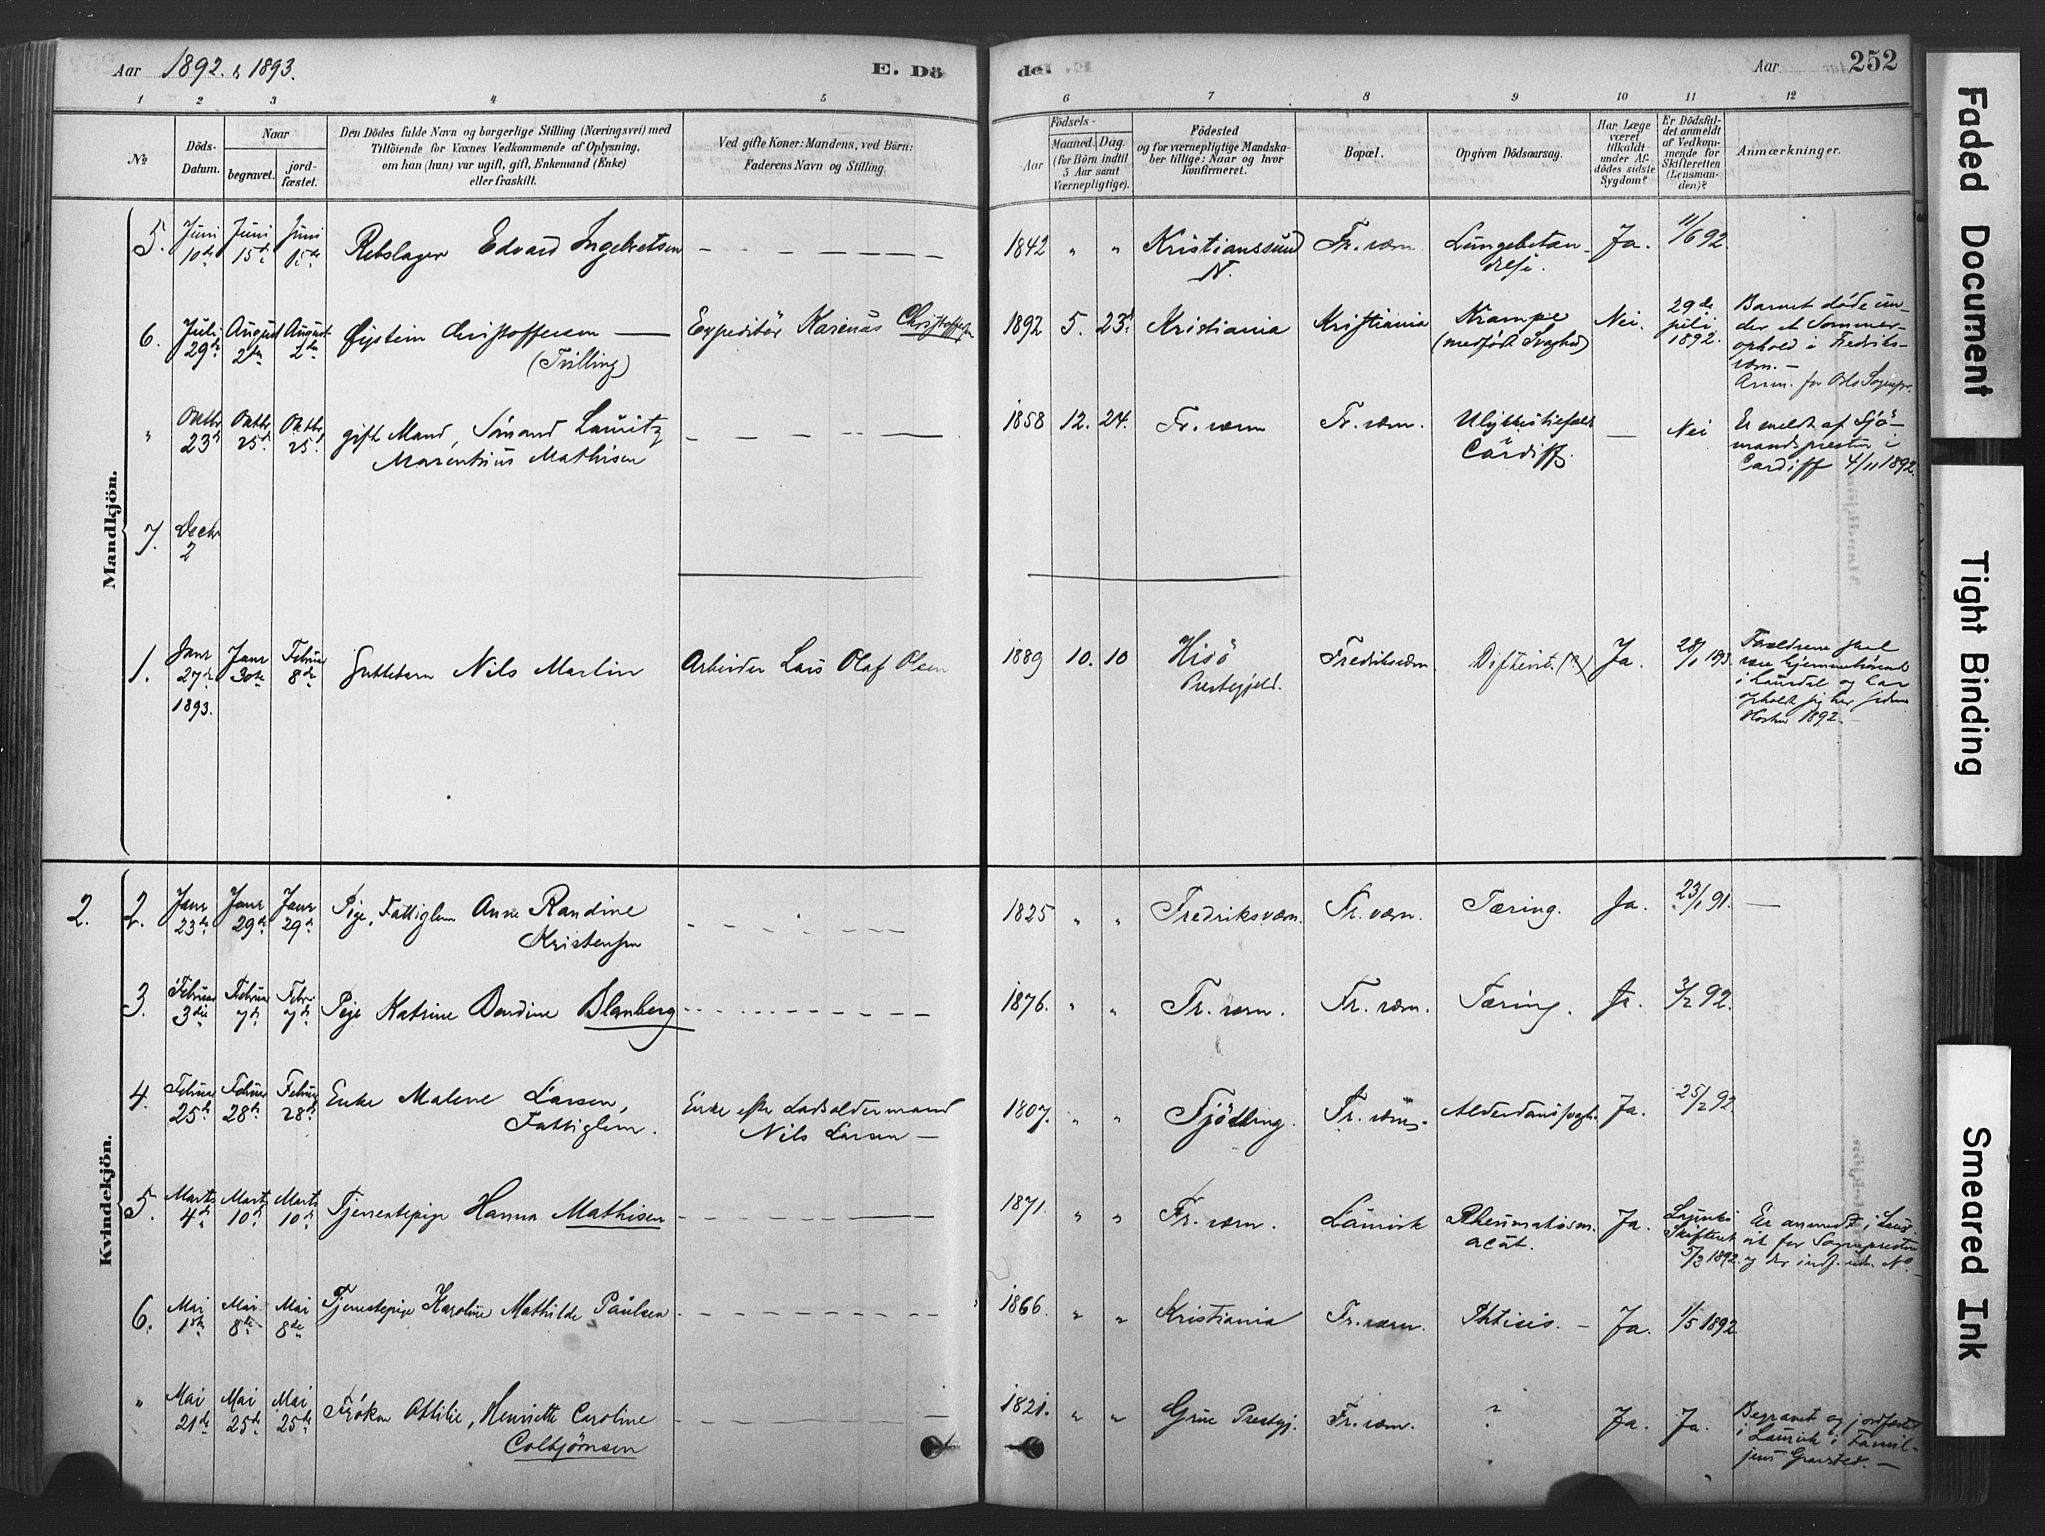 Aar 1892. & 1893.
E. Dö
de.
Aar
252
1 2 3 4 5 6 7 8 9 10 11 12
No
Döds-
Datum.
Naar
begravet.
jord-
fæstet.
Den Dödes fulde Navn og borgerlige Stilling (Næringsvei) med
Tilföiende for Voxnes Vedkommende af Oplysning,
om han (hun) var ugift, gift, Enkemand (Enke)
eller fraskilt.
Ved gifte Koner: Mandens, ved Börn:
Faderens Navn og Stilling.
Födsels-
Aar
Maaned. Dag.
(for Börn indtil
5 Aar samt
Værnepligtige).
Födested
og for værnepligtige Mandska-
ber tillige: Naar og hvor
konfirmeret.
Bopæl.
Opgiven Dödsaarsag.
Har Læge
været
tilkaldt
under Af-
dödes sidste
Sygdom?
Er Dödsfal-
det anmeldt
af Vedkom-
mende for
Skifteretten
(Lensman-
den)?
Anmærkninger.
Mandkjön.
5. Juni 10de Juni 15de Juni 15de Rebslager Edvard Ingebretsen 1842 " " Kristianssund N. Fr. værn Lungebetændelse. Ja. 11/6 92
6. Juli 29de August 2den August 2den Øistein Christoffersen (Tvilling) Expeditör Karenus Christoffersen 1892 5. 23de Kristiania Kristiania Krampe (medfödt Svaghed) Nei. 29de juli 1892.
Barnet döde un-
der et Sommer-
ophold i Fredriks-
værn. —
Anm. for Oslo Sognepr.
" Oktbr 23de Oktbr 25de Oktbr 25. gift Mand, Sömand Lauritz
Marentius Mathisen 1858 12. 24. Fr. værn Fr. værn. Ulykkestilfælde Cardiff. — Nei
Er meldt af Sjö-
mandspresten i
Cardiff 4/11 1892.
7. Decbr 2
1. Janr 27de 1893. Janr 30te Februar 8de Guttebarn Nils Martin Arbeider Lars Olaf Olsen 1889 10. 10 Hisö Prestegjeld. Fredriksværn Difterit. (?) Ja. 28/1 193.
Forældrene skal
være hjemmehörende
i Laurdal og har
opholdt sig her siden
Hösten 1892. —
Kvindekjön.
2. 2. Janr 23de Janr 29de Janr 29de Pige, Fattiglem Anne Randine
Kristensen 1825 " " Fredriksværn. Fr. værn. Tæring. Ja. 23/1 91. —
3. Februar 3die Februar 7de Febr 7de Pige Katrine Bendine Blanberg 1876. " " Fr. værn. Fr. værn. Tæring. Ja. 3/2 92.
4. Februar 25de Februar 28de Februar 28de Enke Malene Larsen,
Fattiglem. Enke efter Lodsoldermand
Nils Larsen — 1807. " " Tjödling. Fr. værn. Alderdomssvagh. Ja. 25/2 92
5. Marts 4de Marts 10de Marts 10de Tjenestepige Hanna Mathisen 1871. " " Fr. værn. Laurvik Rheumatism. acut. Ja. Laurviks Skifteret 5/3 1892.
Er anmeldt i Laur-
vik for Sognepresten
og der indf. uden No —
6. Mai 1ste Mai 8de Mai 8de Tjenestepige Karoline Mathilde Paulsen 1866. " " Kristiania Fr. værn. Phtisis. — Ja. 1/5 1892
" Mai 21de Mai 25de Mai 25de Fröken Ottilie, Henriette Caroline
Colbjørnsen 1821. " " Grue Prestgj. Fr. værn. ? Ja. Ja.
Begravet og jordfæstet
i Laurvik i Famil-
jens Gravsted. —
Faded Document
Tight Binding
Smeared Ink